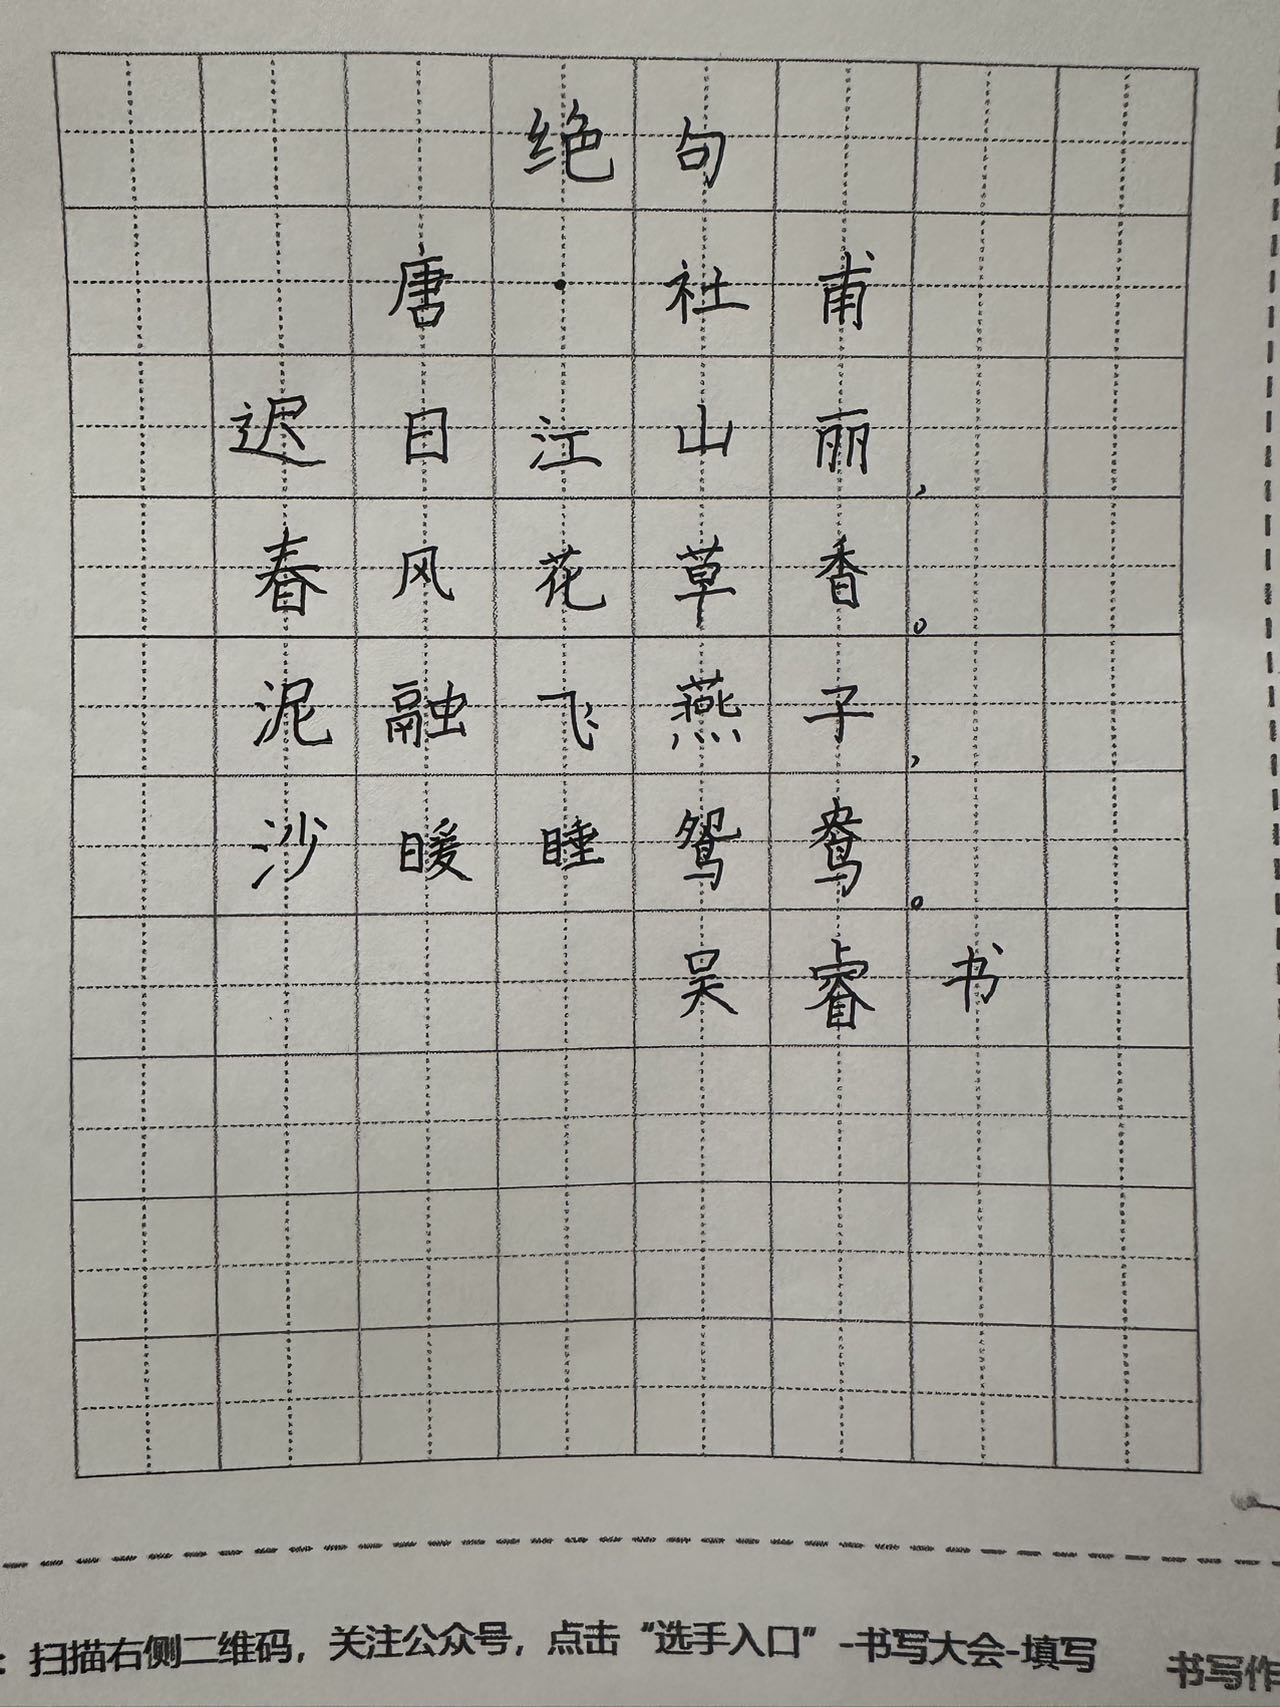 绝句
唐·杜甫
迟日江山丽，
春风花草香。
泥融飞燕子，
沙暖睡鸳鸯。
吴睿书
：扫描右侧二维码，关注公众号，点击“选手入口”-书写大会-填写
书写作